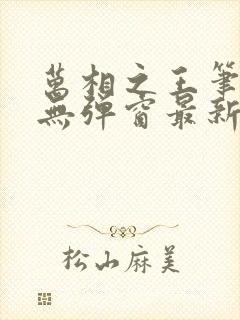 萬相之王筆
無彈窗最新
松山麻美